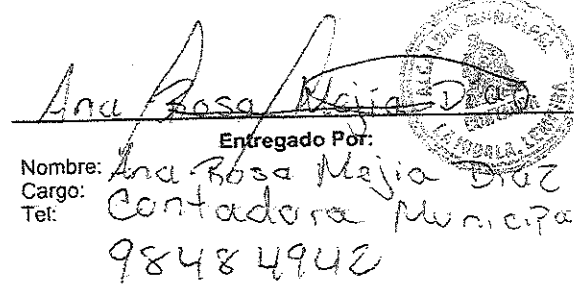 ALCALDIA MUNICIPAL
Ana Rosa Mejia Diaz
Entregado Por:
Nombre: Ana Rosa Mejia Diaz
Cargo: Contadora Municipa
Tel: 98484942